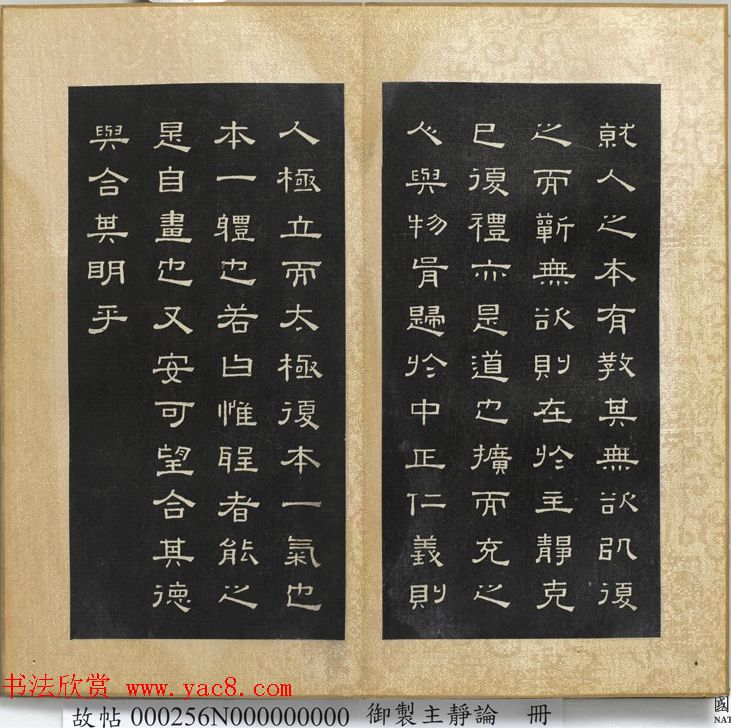 就人之本有教其無欲即復
之而蘄無欲則在於主靜克
已復禮亦是道也擴而充之
心與物胥歸於中正仁義則
人極立而太極復本一氣也
本一體也若曰惟聖者能之
是自畫也又安可望合其德
與合其明乎
书法欣赏 www.yac8.com
故帖 000256N000000000 御製主靜論 冊
國
NAT